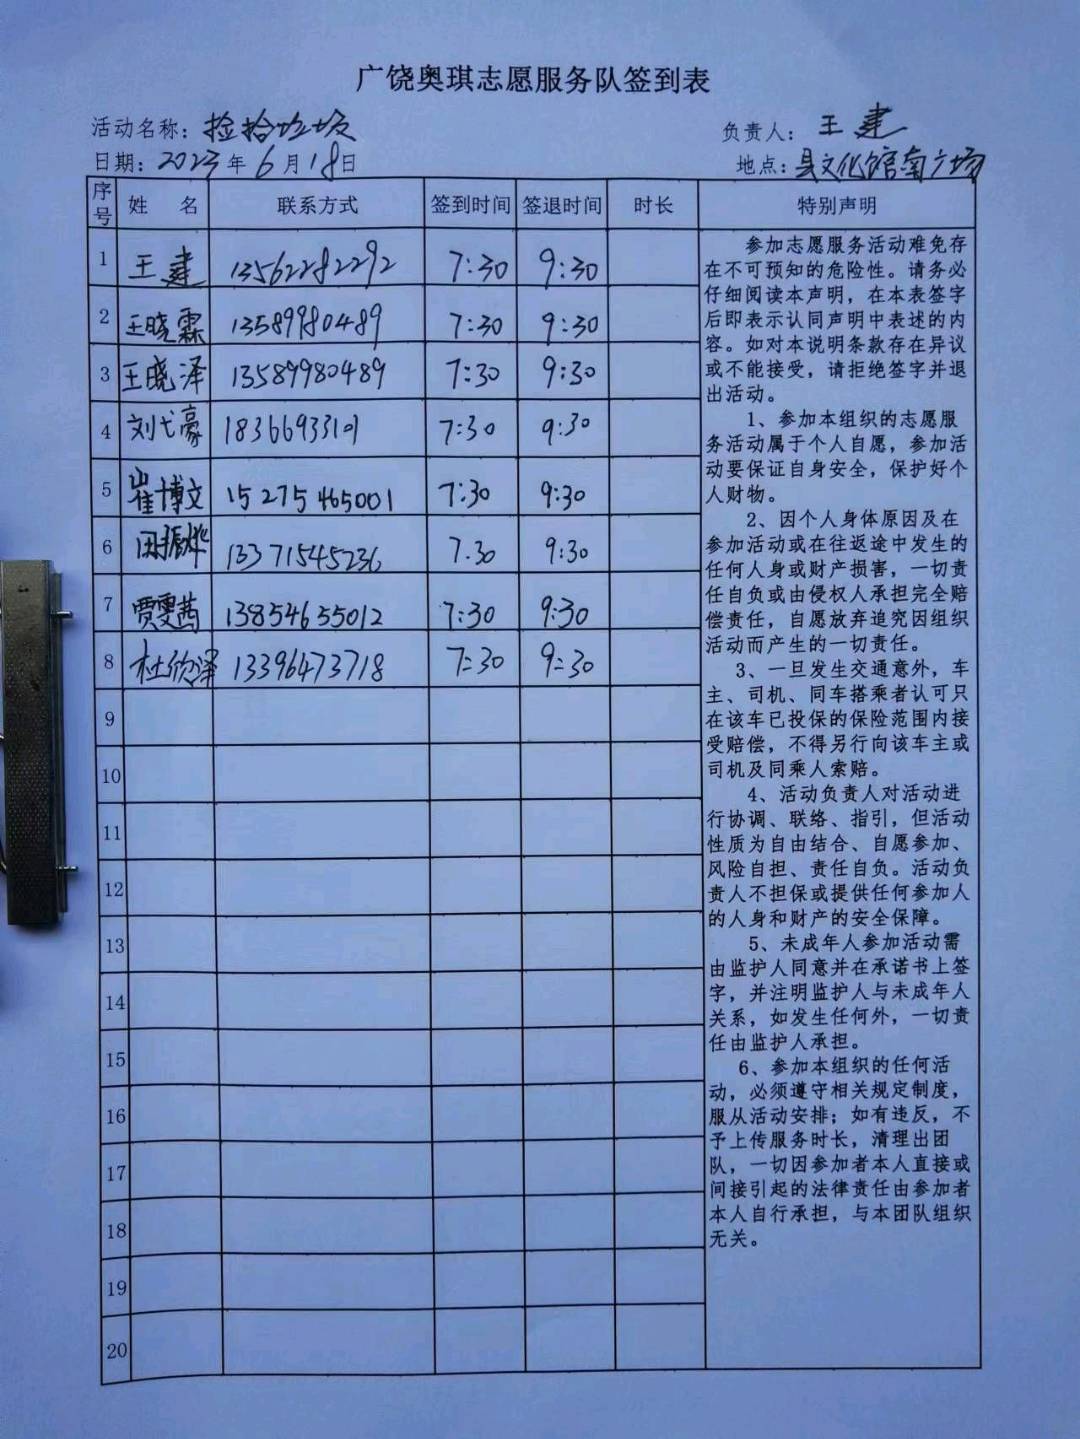 广饶奥琪志愿服务队签到表
活动名称：捡拾垃圾 负责人：王建
日期：2023年6月18日 地点：县文化馆南广场
序号 姓 名 联系方式 签到时间 签退时间 时长 特别声明
1 王建 13562282292 7:30 9:30
2 王晓霖 13589980489 7:30 9:30
3 王晓泽 13589980489 7:30 9:30
4 刘弋豪 18366933101 7:30 9:30
5 崔博文 15275465001 7:30 9:30
6 田振烨 13371545236 7.30 9:30
7 贾雯茜 13854655012 7:30 9:30
8 杜欣泽 13396473718 7:30 9:30
9
10
11
12
13
14
15
16
17
18
19
20
参加志愿服务活动难免存
在不可预知的危险性。请务必
仔细阅读本声明，在本表签字
后即表示认同声明中表述的内
容。如对本说明条款存在异议
或不能接受，请拒绝签字并退
出活动。
1、参加本组织的志愿服
务活动属于个人自愿，参加活
动要保证自身安全，保护好个
人财物。
2、因个人身体原因及在
参加活动或在往返途中发生的
任何人身或财产损害，一切责
任自负或由侵权人承担完全赔
偿责任，自愿放弃追究因组织
活动而产生的一切责任。
3、一旦发生交通意外，车
主、司机、同车搭乘者认可只
在该车已投保的保险范围内接
受赔偿，不得另行向该车主或
司机及同乘人索赔。
4、活动负责人对活动进
行协调、联络、指引，但活动
性质为自由结合、自愿参加、
风险自担、责任自负。活动负
责人不担保或提供任何参加人
的人身和财产的安全保障。
5、未成年人参加活动需
由监护人同意并在承诺书上签
字，并注明监护人与未成年人
关系，如发生任何外，一切责
任由监护人承担。
6、参加本组织的任何活
动，必须遵守相关规定制度，
服从活动安排；如有违反，不
予上传服务时长，清理出团
队，一切因参加者本人直接或
间接引起的法律责任由参加者
本人自行承担，与本团队组织
无关。